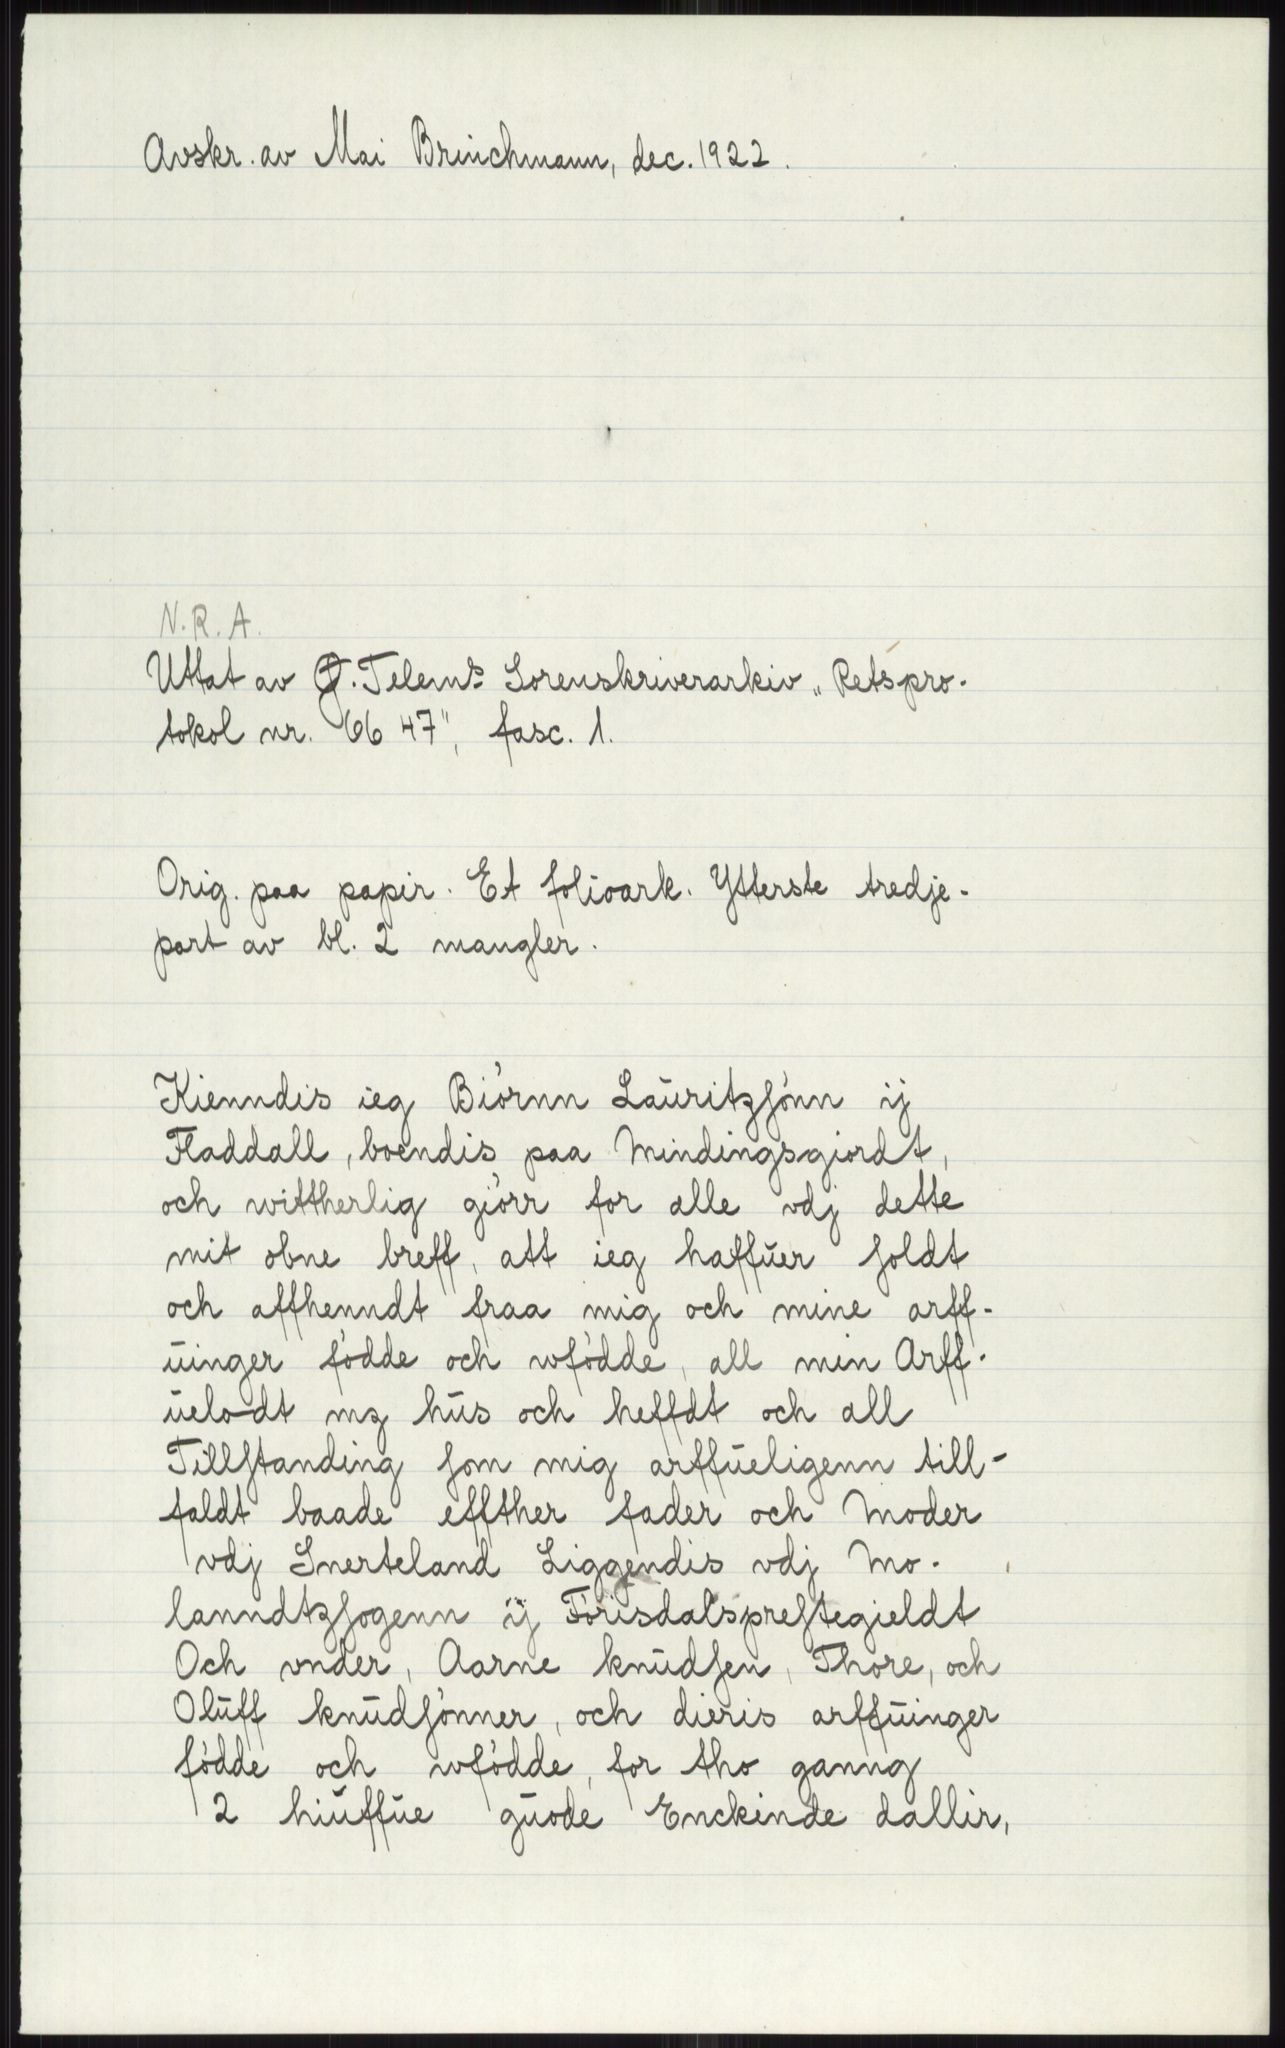 Avskr. av Mai Brinchmann, dec. 1922.
N.R.A.
Uttat av Ø. Telem.s Sorenskriverarkiv „Retspro-
tokol nr. 66 47", fasc. 1.
Orig. paa papir. Et folioark. Ytterste tredje-
part av bl. 2 mangler.
Kienndis ieg Biörnn Lauritzsönn ij
Fladdall, boendis paa Mindingsgiordt,
och wittherlig giörr for alle vdj dette
mit obne breff, att ieg haffuer soldt
och affhenndt fraa mig och mine arff-
uinger födde och wfödde, all min Arff-
uelodt mz hus och heffdt och all
Tillstanding som mig arffueligenn till-
faldt baade effther fader och Moder
vdj Snerteland Liggendis vdj Mo-
lanndtzsogenn ij Förisdalsprestegieldt
Och vnder, Aarne knudsen, Thore, och
Oluff knudsönner, och dieris arffuinger
födde och wfödde, for tho ganng
2 hiuffue guode Enckinde dallir,